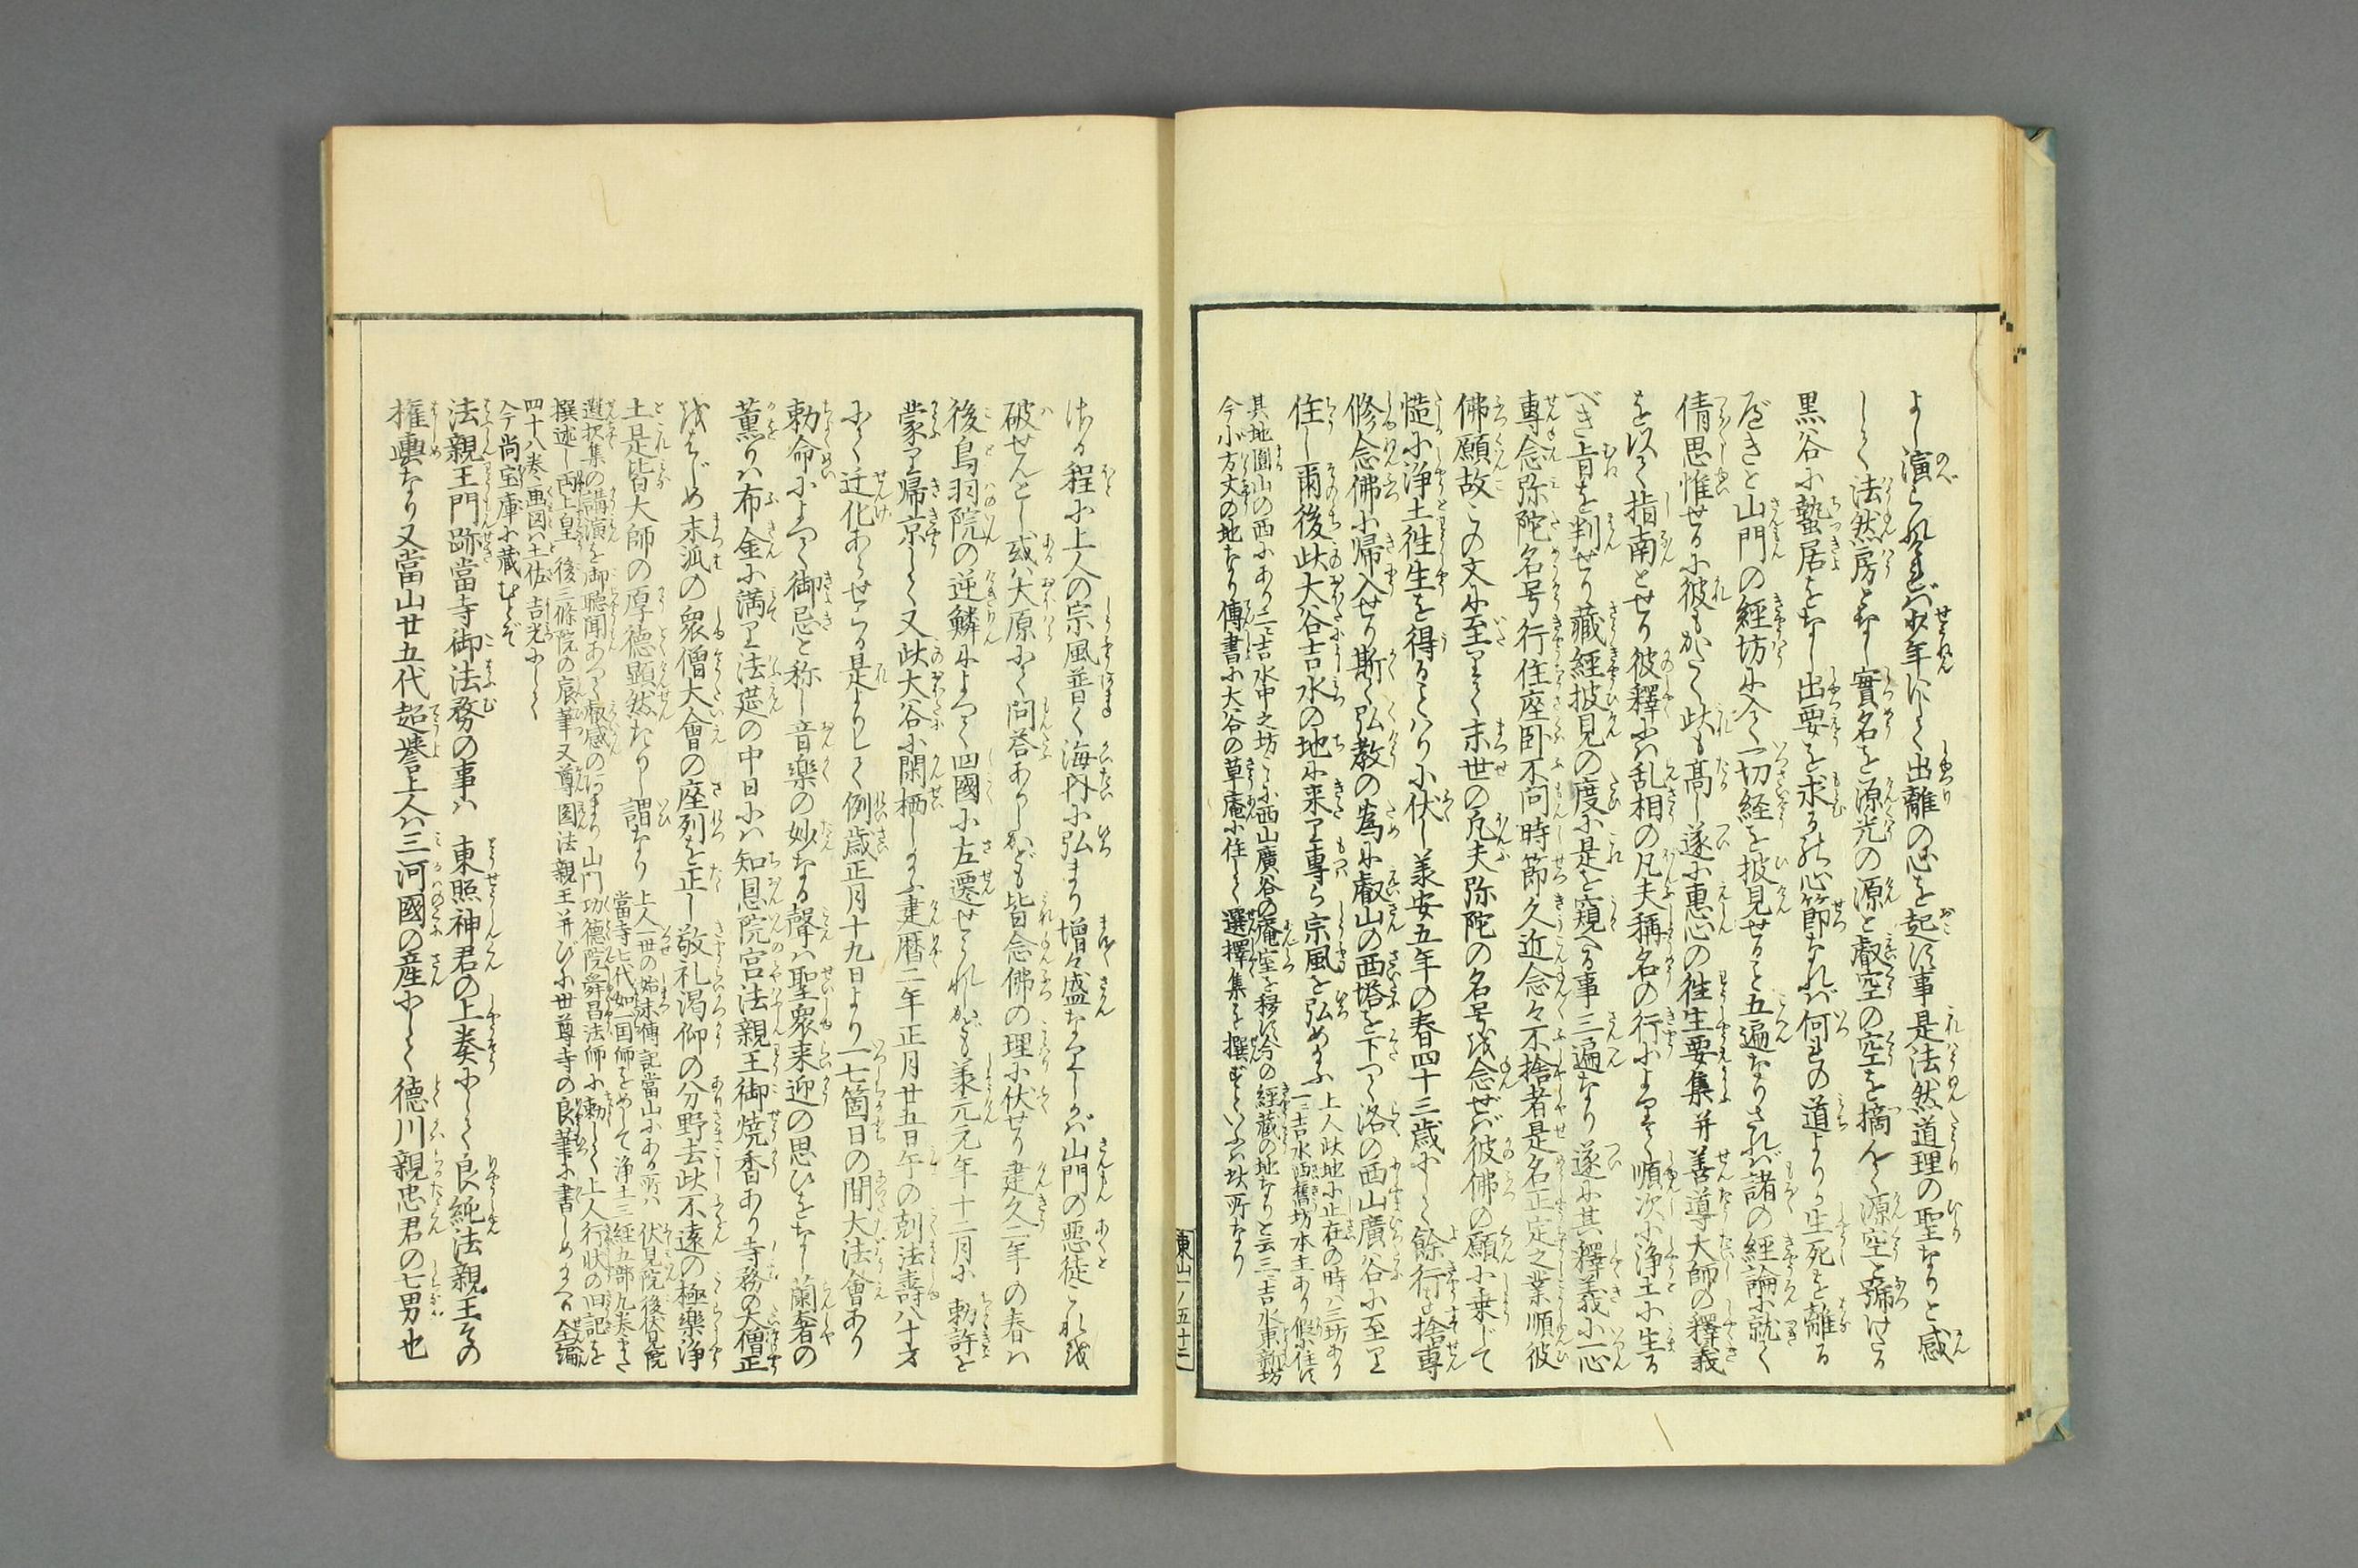 よし演られければ少年にして出離の心を起す事是法然道理の聖なりと感
して法然房となし實名を源光の源と叡空の空を摘んで源空と號けたる
黒谷に蟄居をなし出要を求るの心節なれば何れの道よりか生死を離る
べきと山門の經坊に入て一切経を披見せること五遍なりされば諸の經論に就て
倩思惟せるに彼もかたく此も髙し遂に惠心の徃生要集并善導大師の釋義
を以て指南とせり彼釋には乱相の凡夫稱名の行によりて順次に浄土に生る
べき旨を判ぜり藏經披見の度に是を窺へる事三遍なり遂に其釋義に一心
專念弥陀名号行住座臥不問時節久近念々不捨者是名正定之業順彼
佛願故この文に至りて末世の凡夫弥陀の名号を念ぜば彼佛の願に乗じて
慥に浄土徃生を得ることはりに伏し羕安五年の春四十三歳にして餘行を捨専
修念佛に帰入せり斯く弘教の為に叡山の西塔を下て洛の西山廣谷に至り
住し爾後此大谷吉水の地に来り專ら宗風を弘め給ふ
上人此地に止在の時は三坊あり
一ニ吉水西舊坊本主あり假に住す
其地圓山の西にあり二ニ吉水中之坊こゝに西山廣谷の庵室を移す今の經藏の地なりと云三ニ吉水東新坊
今小方丈の地なり傳書に大谷の草庵に住して選擇集を撰ずといふは此所なり
東山一ノ五十二
ける程に上人の宗風普く海内に弘まり增々盛なりしかば山門の惡徒これを
破せんとし或は大原にて問答ありしかども皆念佛の理に伏せり建久二年の春は
後鳥羽院の逆鱗によつて四國に左遷せられしかども羕元元年十二月に勅許を
蒙り帰京して又此大谷に閑栖し給ふ建暦二年正月廿五日午の刻法壽八十才
にて迁化あらせらる是よりして例歳正月十九日より一七箇日の間大法會あり
勅命によつて御忌と称し音樂の妙なる聲は聖衆来迎の思ひをなし蘭奢の
薫りは布金に満り法莚の中日には知恩院宮法親王御焼香あり寺務の大僧正
をはじめ末派の衆僧大會の座列を正し敬礼渇仰の分野去此不遠の極樂浄
土是皆大師の厚德顯然たりし謂なり
上人一世の始末傳記當山にある所は伏見院後伏見院
當寺七代如一国師をめして浄土三經五部九巻また
選択集の講演を御聴聞あつて叡感の
山門功德院舜昌法師に勅して上人行状の旧記を
撰述し両上皇後三條院の宸筆又尊圓法親王并びに世尊寺の良筆に書しめ給ふ全編
四十八巻画図は土佐吉光にして
今尚宝庫に藏むとぞ
法親王門跡當寺御法務の事は東照神君の上奏にして良純法親王その
権輿なり又當山廿五代超誉上人は三河國の産にして德川親忠君の七男也